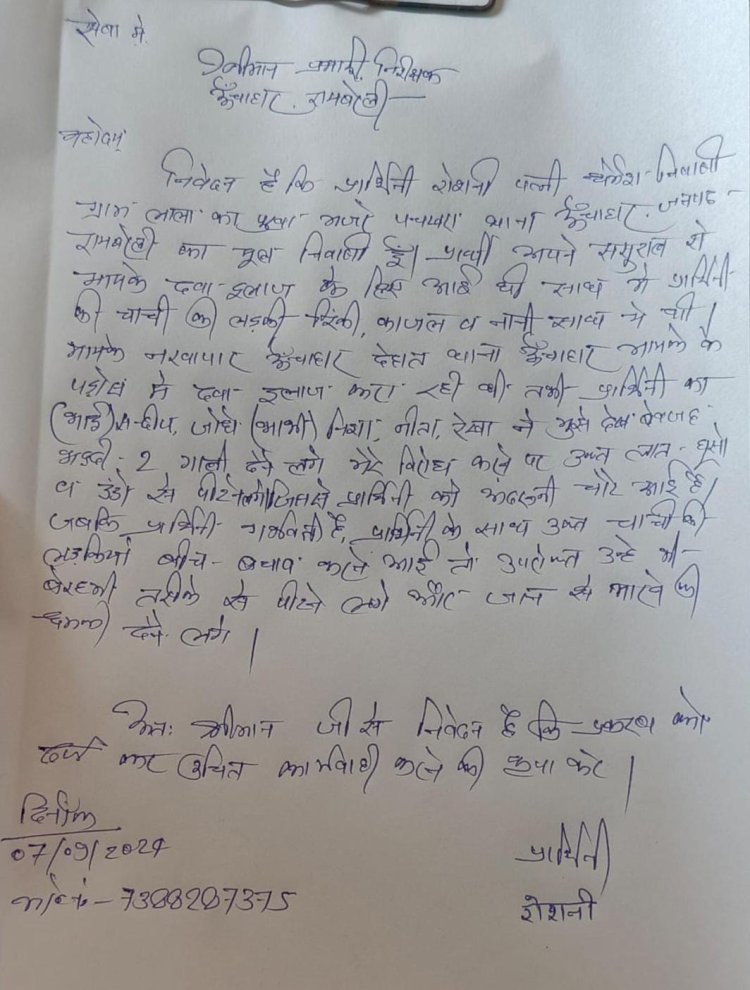 सेवा में,
श्रीमान प्रभारी निरीक्षक
ऊँचाहार, रायबरेली
महोदय,
निवेदन है कि प्रार्थिनी रोशनी पत्नी निवासी
ग्राम लाला का पुरवा मजरे थाना ऊँचाहार, जनपद-
रायबरेली का मूल निवासी हूँ। प्रार्थी अपने ससुराल से
मायके दवा-इलाज के लिए आई थी साथ में प्रार्थिनी
की चाची की लड़की रिंकी, काजल व नानी साथ में थी।
मायके ऊँचाहार देहात थाना ऊँचाहार मायके के
पड़ोस में दवा इलाज करा रही थी तभी प्रार्थिनी का
(भाई) सन्दीप, (भाभी) निशा, नीता, रेखा ने मुझे देख बेवजह
भद्दी-2 गाली देने लगे मेरे विरोध करने पर उक्त लात-घूसो
व डंडो से पीटने लगे जिससे प्रार्थिनी को अंदरूनी चोटे आई है।
जबकि प्रार्थिनी गर्भवती है, प्रार्थिनी के साथ उक्त चाची की
लड़कियां बीच-बचाव करने आई तो उपरोक्त उन्हे भी-
बेरहमी तरीके से पीटने लगे और जान से मारने की
धमकी देने लगे।
अतः श्रीमान जी से निवेदन है कि प्रकरण को
दर्ज कर उचित कार्यवाही करने की कृपा करे।
दिनाँक
07/09/2024
प्रार्थिनी
मो०नं०- 7388207375
रोशनी